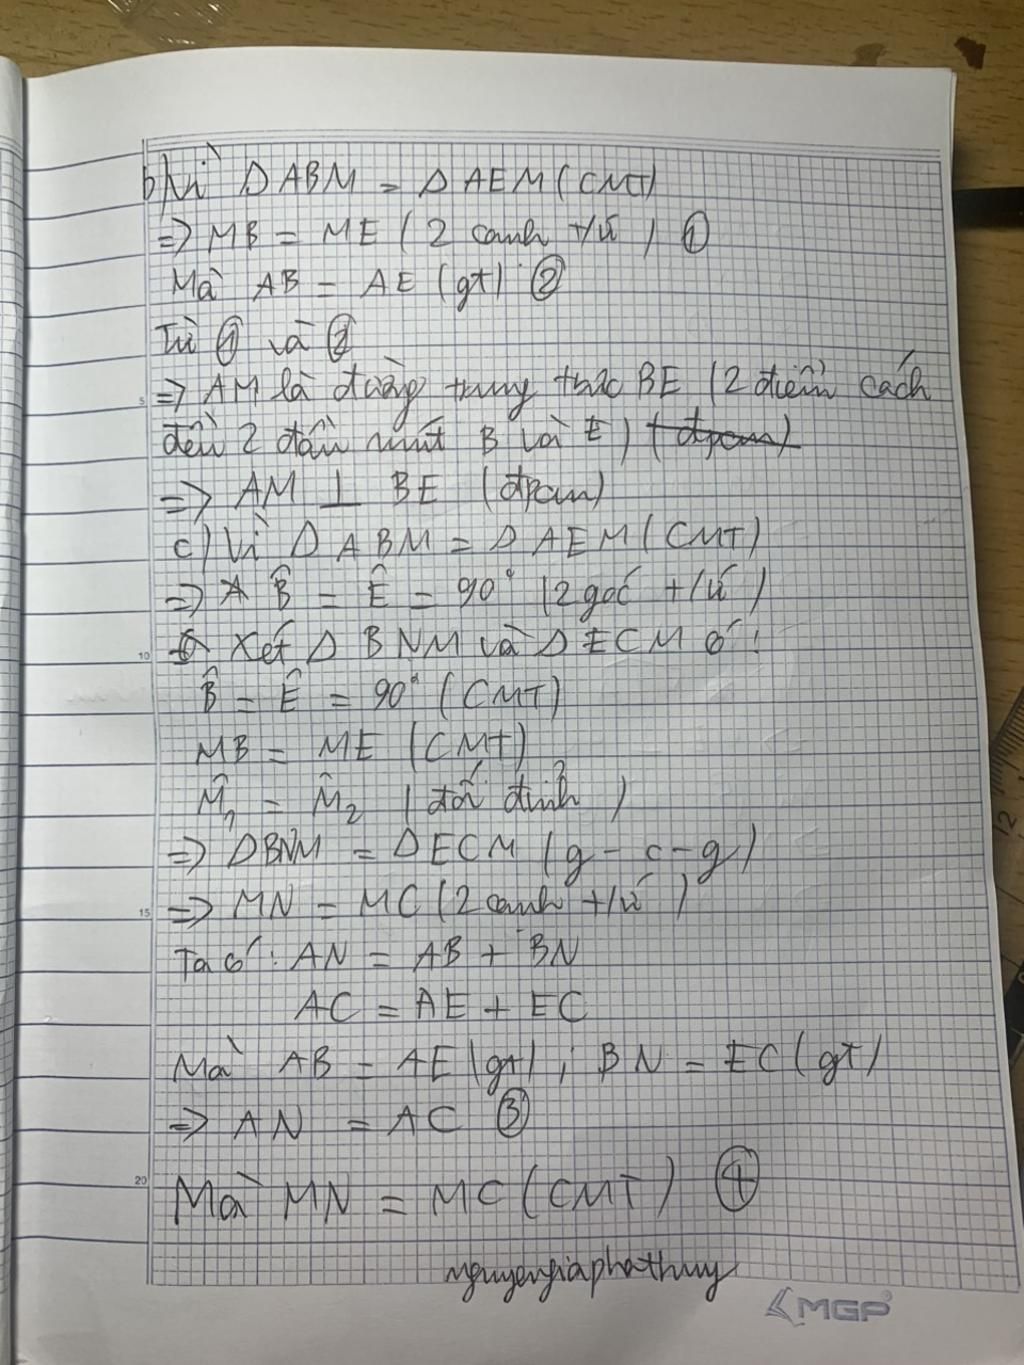 b) Vì Δ ABM = Δ AEM (CMT)
=> MB = ME (2 cạnh t/ứ) ①
Mà AB = AE (gt) ②
Từ ① và ②
=> AM là đường trung trực BE (2 điểm cách
đều 2 đầu mút B và E) (đpcm)
=> AM ⊥ BE (đpcm)
c) Vì Δ ABM = Δ AEM (CMT)
=> B̂ = Ê = 90° (2 góc t/ứ)
Xét Δ BNM và Δ ECM có:
B̂ = Ê = 90° (CMT)
MB = ME (CMT)
M̂₁ = M̂₂ (đối đỉnh)
=> ΔBNM = ΔECM (g-c-g)
=> MN = MC (2 cạnh t/ứ)
Ta có: AN = AB + BN
AC = AE + EC
Mà AB = AE (gt); BN = EC (gt)
=> AN = AC ③
Mà MN = MC (CMT) ④
nguyengiaphathuy
MGP
5
10
15
20
12